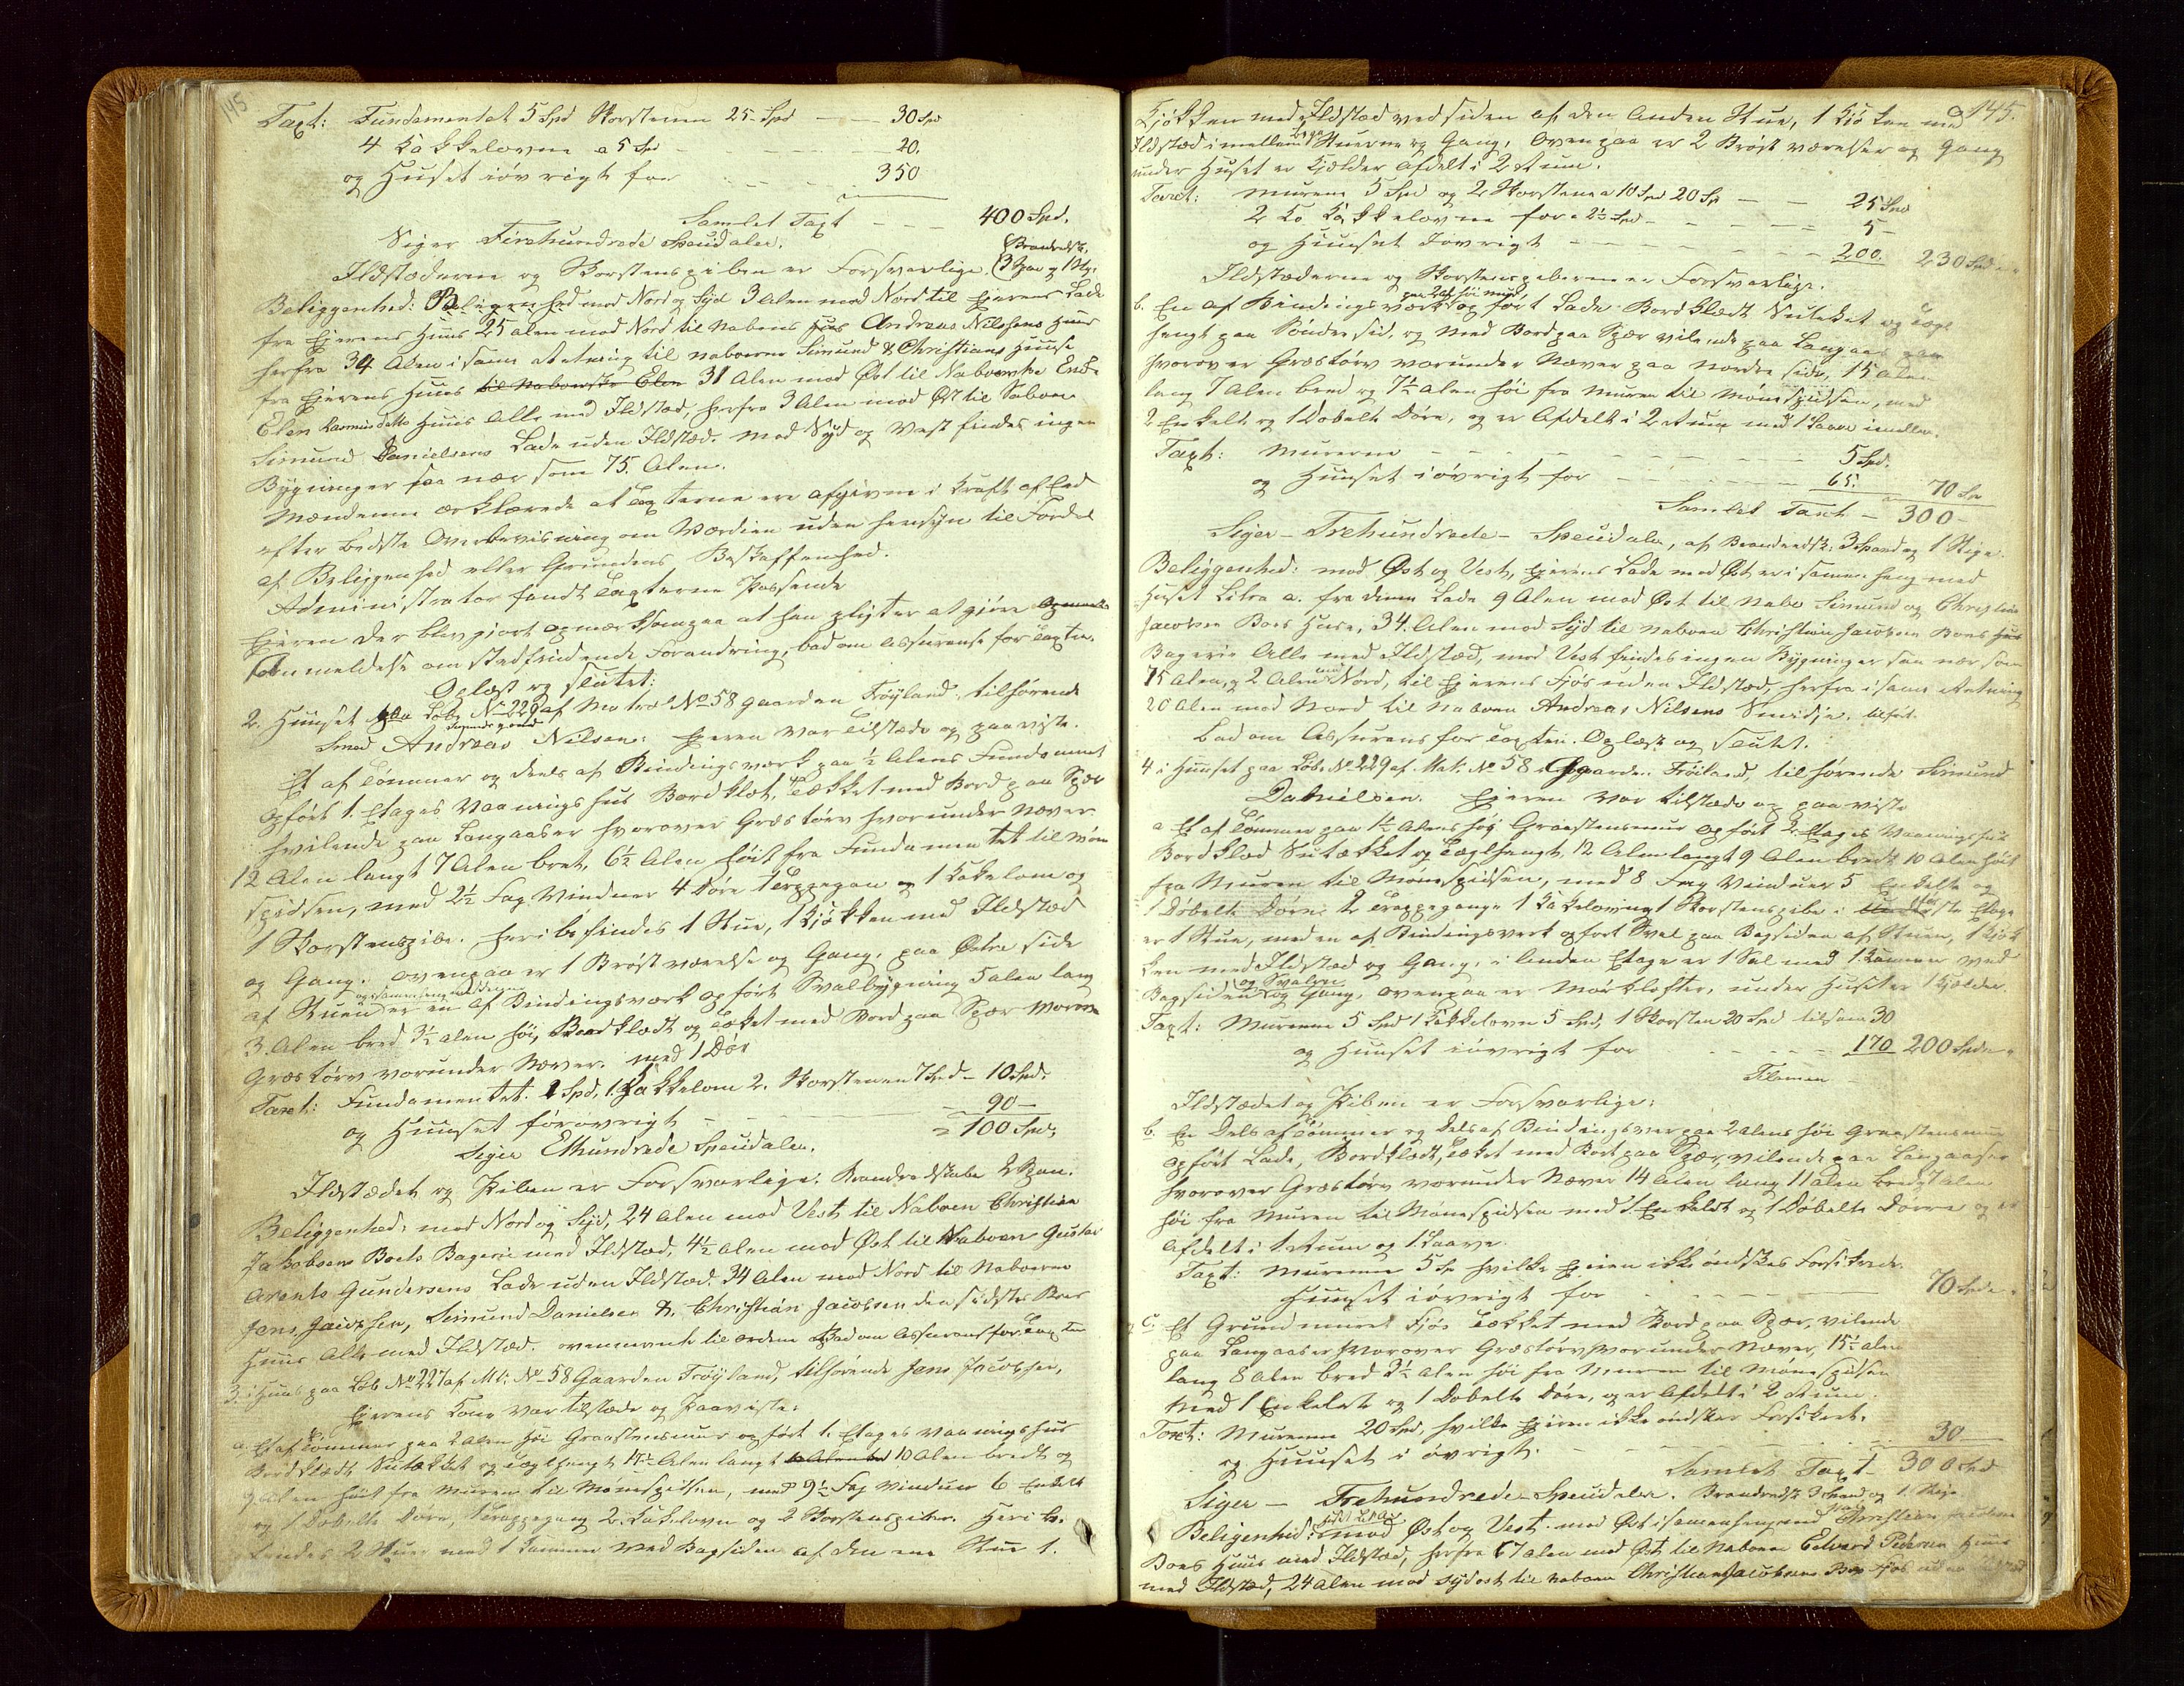 145
Taxt: Fundamentet 5 Spd Skorstenen 25 Spd — — 30 Spd
4 Kakkelovne a 5 Spd — — 20.
og Huset iøvrigt for — — 350
Samlet Taxt — — 400 Spd.
Siger Firehundrede Speudaler.
Ildstæderne og Skorstenspiben er Forsvarlige. (Brandredsk. 3 Span og 1 Stig.
Beliggenhed: Beligenhed mod Nord og Syd 3 Alen mod Nord til Ejerens Lade
fra Ejerens Huus 25 alen mod Nord til Naboens Hus Andreas Nilssens Huus
herfra 34 Alen i samme Retning til naboerne Simund & Christians Huuse
fra Ejerens Huus til Naboerske Elen 31 Alen mod Øst til Naboerske Enke
Elen Rasmusdatts Huus Alle med Ildstæd, herfra 3 Alen mod Øst til Naboen
Simund Danielsens Lade uden Ildstæd. mod Syd og Vest findes ingen
Bygninger saa nær som 75. Alen.
Mændene erklærede at Taxterne ere afgivne i Kraft af Eed
efter bedste Overbevisning om Værdien uden hensyn til Fordel
af Beliggenhed eller Grundens Beskaffenhed.
Administrator fandt Taxterne Passende
Ejeren der blev gjort opmærksom paa at han pligter at gjøre
Anmeldelse om stedfindende Forandring, bad om Assurense for Taxten.
Oplæst og slutet:
2. Huuset paa Løb. No 229 af Matra No 58 gaarden Frøyland, tilhørende
Smed Andreas Nilsen: Ejeren var Tilstæde og paaviste.
Et af Tømmer og deels af Bindingsværk paa ½ Alens Fundament
opført 1. Etages Vaaningshus Bordklæt, Tækket med Bord paa Spær
hvilende paa Langaaser hvorover Græstørv hvorunder Næver
12 Alen langt 7 Alen bret, 6½ Alen høit fra Fundamentet til Møn
spidsen, med 2½ Fag Vinduer 4 Døre 1 Trappegan og 1 Kakelovn og
1 Skorstenspibe. heri befindes 1 Stue, 1 Kjøkken med Ildstæd
og Gang. ovenpaa er 1 Brøstværelse og Gang, paa Østre side
af Stuen og i sammenheng med denne er en af Bindingsværk opført Svalbygning 5 alen lang
3. Alen bred 3½ alen høi, Bordklædt og Tækket med Bord paa Spær Hvorov
Græstørv vorunder Næver. med 1 Dør
Taxt: Fundamentet. 1 Spd, 1 Kakkelovn 2. Skorstenen 7 Spd — 10 Spd.
og Huuset førøvrigt — — 90 —
= 100 Spd;
Siger Ethundrede Speudaler.
Ildstædet og Piben er Forsvarlige: Brandredskabe 2 Span.
Beliggenhed: mod Nord og Syd, 24 Alen mod Vest til Naboen Christian
Jakobsens Boets Bagerie med Ildstæd, 4½ Alen mod Øst til Naboen Gustav
Arents Gundersens Lade uden Ildstæd. 34 Alen mod Nord til Naboerne
Jens Jacobsen, Simund Danielsen &. Christian Jacobsen den sidstes Boes
Huus Alle med Ildstæd. ovennævnte til ordene Bad om Assuransf for Taxten
3. i Huus paa Løb No 227 af Mt: No 58 Gaarden Frøyland, tilhørende Jens Jacobsen,
Ejerens Kone var tilstæde og Paaviste:
a. Et af Tømmer paa 2 Alen høi Graastensmur opført 1. Etages Vaaningshus
Bordklædt Sutækket og Taglhengt 15½ Alen langt 10 Alen bredt og
9 Alen høit fra Muren til Mønespidsen, med 9½ Fag Vinduer 6 Enkelt
og 1 Dobelte Døre, 1 Trappegang 2. Kakelovn og 2 Skorstenspiber. Heri be
findes 2 Stuer med 1 Kammer ved Bagsiden af den ene Stue 1.
145.
Kjøkken med Ildstæd ved siden af den Anden Stue, 1 Kjøken med
Ildstæd imellem begge Stuerne og Gang, Ovenpaa er 2 Brøstværelser og Gang
under Huset er Kjælder afdelt i 2 Rum.
Taxt: Murene 5 Spd og 2 Skorstene a 10 Spd 20 Sp — — 25 Spd
2 Kakkelovne for a 2½ Spd — — 5 —
og Huuset Iøvrigt — — 200. 230 Spd
Ildstæderne og Skorstenspiberne er Forsvarlige.
b. En af Bindingsværk paa 2 Al. høi muur opført Lade Bordklædt Sutæket og Tagl
hengt paa Søndre Sid, og med Bord paa Spær vilende paa Langaas
hvorover Græstørv vorunder Næver paa nordre side, 15 alen
lang 7 Alen bred og 7½ Alen høi fra Muren til Mønespidsen, med
2 Enkelt og 1 Dobelt Døre, og er Afdelt i 2 Rum med 1 Laave imellem.
Taxt: Murerne — — 5 Spd.
og Huuset iøvrigt for — — 65. 70 Sp
Samlet Taxt — 300 —
Siger — Trehundrede — Speudaler, af Brandredsk: 3 Spand og 1 Stige.
Beliggenhed: mod Øst og Vest, Ejerens Lade mod Øst er i samenheng med
Huset Litra a. fra denne Lade 9 Alen mod Øst til Nabo Simund og Christian
Jacobsen Boes Huse, 34. Alen mod Syd til naboen Christian Jacobsen Boes
Bagerie Alle med Ildstæd, mod Vest findes ingen Bygninger saa nær som
75 Alen, og 2 Alen mod Nord, til Ejerens Fjøs uden Ildstæd, herfra i same Retning
20 Alen mod Nord til Naboen Andreas Nilsens Smidje. tilført.
Bad om Assurens for Taxten. Oplæst og slutet.
4 i Huuset paa Løb. No 229 af. Mat. No 58 Gaarden Frøiland, tilhørende Simund
Danielsen. Ejeren var tilstæde og paaviste
a Et af Tømmer paa 1½ Alens høy Graastensmur opført 2. Etages Vaaningshus
Bordklæd Sutækket og Taglhengt, 12 Alen langt 9 Alen bredt 10 Alen høit
fra Muren til Mønespidsen, med 8 Fag Vinduer 5 Enkelte og
1 Døbelte Døre: 2 Trappegange 1 Kakelovn og 1 Skorstenspibe i 1ste Etage
er 1 Stue, med en af Bindingsverk opført Sval paa Bagsiden af Stuen, 1 Kjøk
ken med Ildstæd og Gang, i Anden Etage er 1 Sal med 1. Kammer ved
Bagsiden og Svalen og Gang, ovenpaa er Mørklofter, under Huset er 1 Kjælder.
Taxt: Murenne 5 Spd 1 Kakkelovn 5 Spd, 1 Skorsten 20 Spd tilsam 30
og Huuset iøvrigt for — — 170 200 Spd
Tilsamen
Ildstædet og Piben er Forsvarlige:
b. En Dels af Tømmer og dels af Bindingsver paa 2 Alens høi Graastensmur
opført Lade, Bordklædt, tæket med Bort paa Spær, vilende paa Langaaser
hvorover Græstørv vorunder Næver 14 Alen lang 11 alen bred 7 Alen
høi fra Muren til Mønespidsen med 1. Enkeldt og 1 Dobelte Dørre og er
Afdelt i 1 Rum og 1 Laave.
Taxt: Murenne 5 Sp hvilke Ejeren ikke øndskes Forsikrede
Huuset iøvrigt for — — 70 Spd.
c. Et Grundmuret Fjøs Tækket med Bord paa Spær, vilende
paa Langaaser Hvorover Græstørv Hvorunder Næver, 15½ alen
lang 8 Alen bred 3½ Alen høi fra Muren til Mønespidsen
med 1 Enkelt og 1 Dobelte Døre, og er Afdelt i 2 Rum.
Taxt: Murenne 20 Spd, hvilke Ejeren ikke øndsker Forsikret.
og Huuset i øvrigt. — — 30
Samlet Taxt — 300 Spd
Siger — Trehundrede — Speudaler. Brandredsk 3 Spand og 1. Stige
Beligenhed: mod Øst og Vest. mod Øst i samenheng med Christian Jacobsens
Boes Huus med Ildstæd, herfra 67 alen mod Øst til Naboen Edvard Pedersen Huus
med Ildstæd, 24 Alen mod Sydost til naboen Christian Jacobsens Boes Fjøs uden Ildstæd